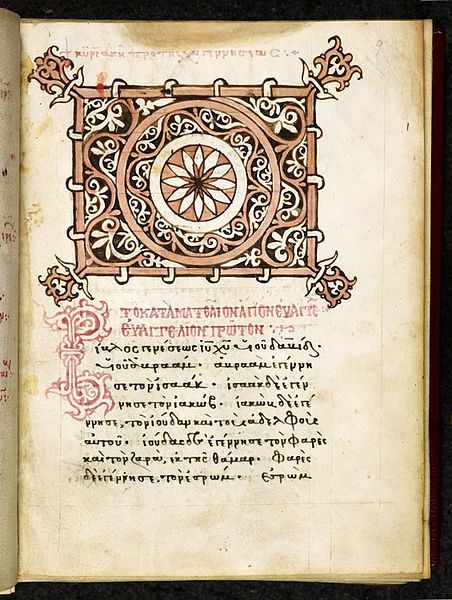 † κυριακὴ πρὸ τῆς χ̅υ γεννήσεως
τὸ κατὰ ματθαῖον ἅγιον εὐαγγε
ευαγγελιον πρωτον
Βίβλος γενέσεως ι̅υ χ̅υ υἱοῦ δα̅δ
υἱοῦ ἀβραάμ· ἀβραὰμ ἐγέννη
σε τὸν ἰσαάκ· ἰσαὰκ δὲ ἐγέ
ννησε τὸν ἰακώβ· ἰακὼβ δὲ ἐγέ
ννησε, τὸν ἰούδαν καὶ τοὺς ἀδελφοὺς
αὐτοῦ· ἰούδας δὲ ἐγέννησε τὸν φαρὲς
καὶ τὸν ζαρὰ, ἐκ τῆς θάμαρ· Φαρὲς
δὲ ἐγέννησε, τὸν ἐσρώμ· Ἐσρὼμ